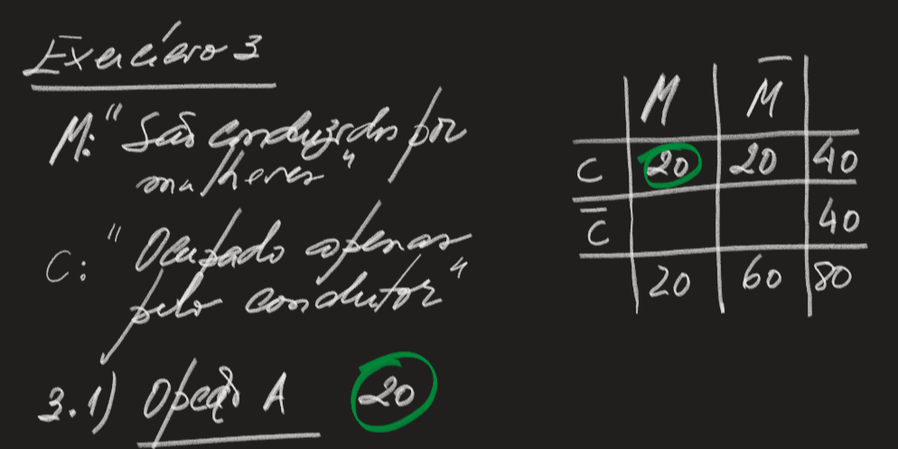 Exercício 3
M: "São conduzidos por
mulheres"
C: "Ocupado apenas
pelo condutor"
3.1) Opção A 20
M M̅
C 20 20 40
C̅ 40
20 60 80